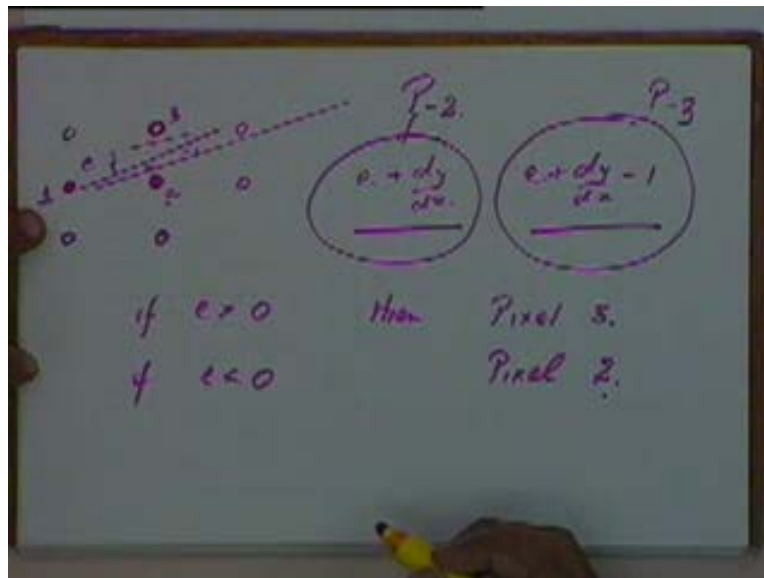 P-2. P-3
3
e
1
2
e + dy/dx. e + dy/dx - 1
if e > 0 then Pixel 3.
if e < 0 Pixel 2.